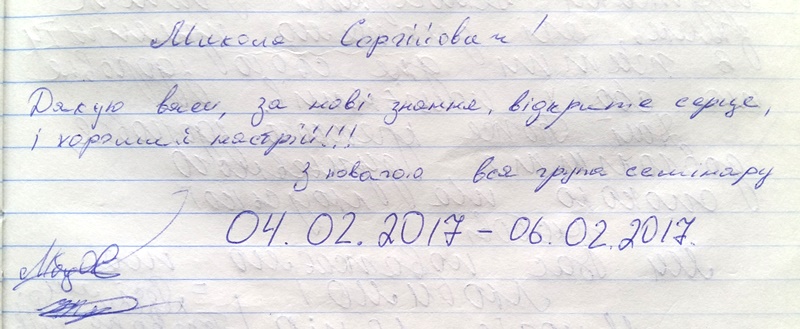 Микола Сергійович!
Дякую вам, за нові знання, відкрите серце,
і хороший настрій!!!
З повагою вся група семінару
04.02.2017 – 06.02.2017.